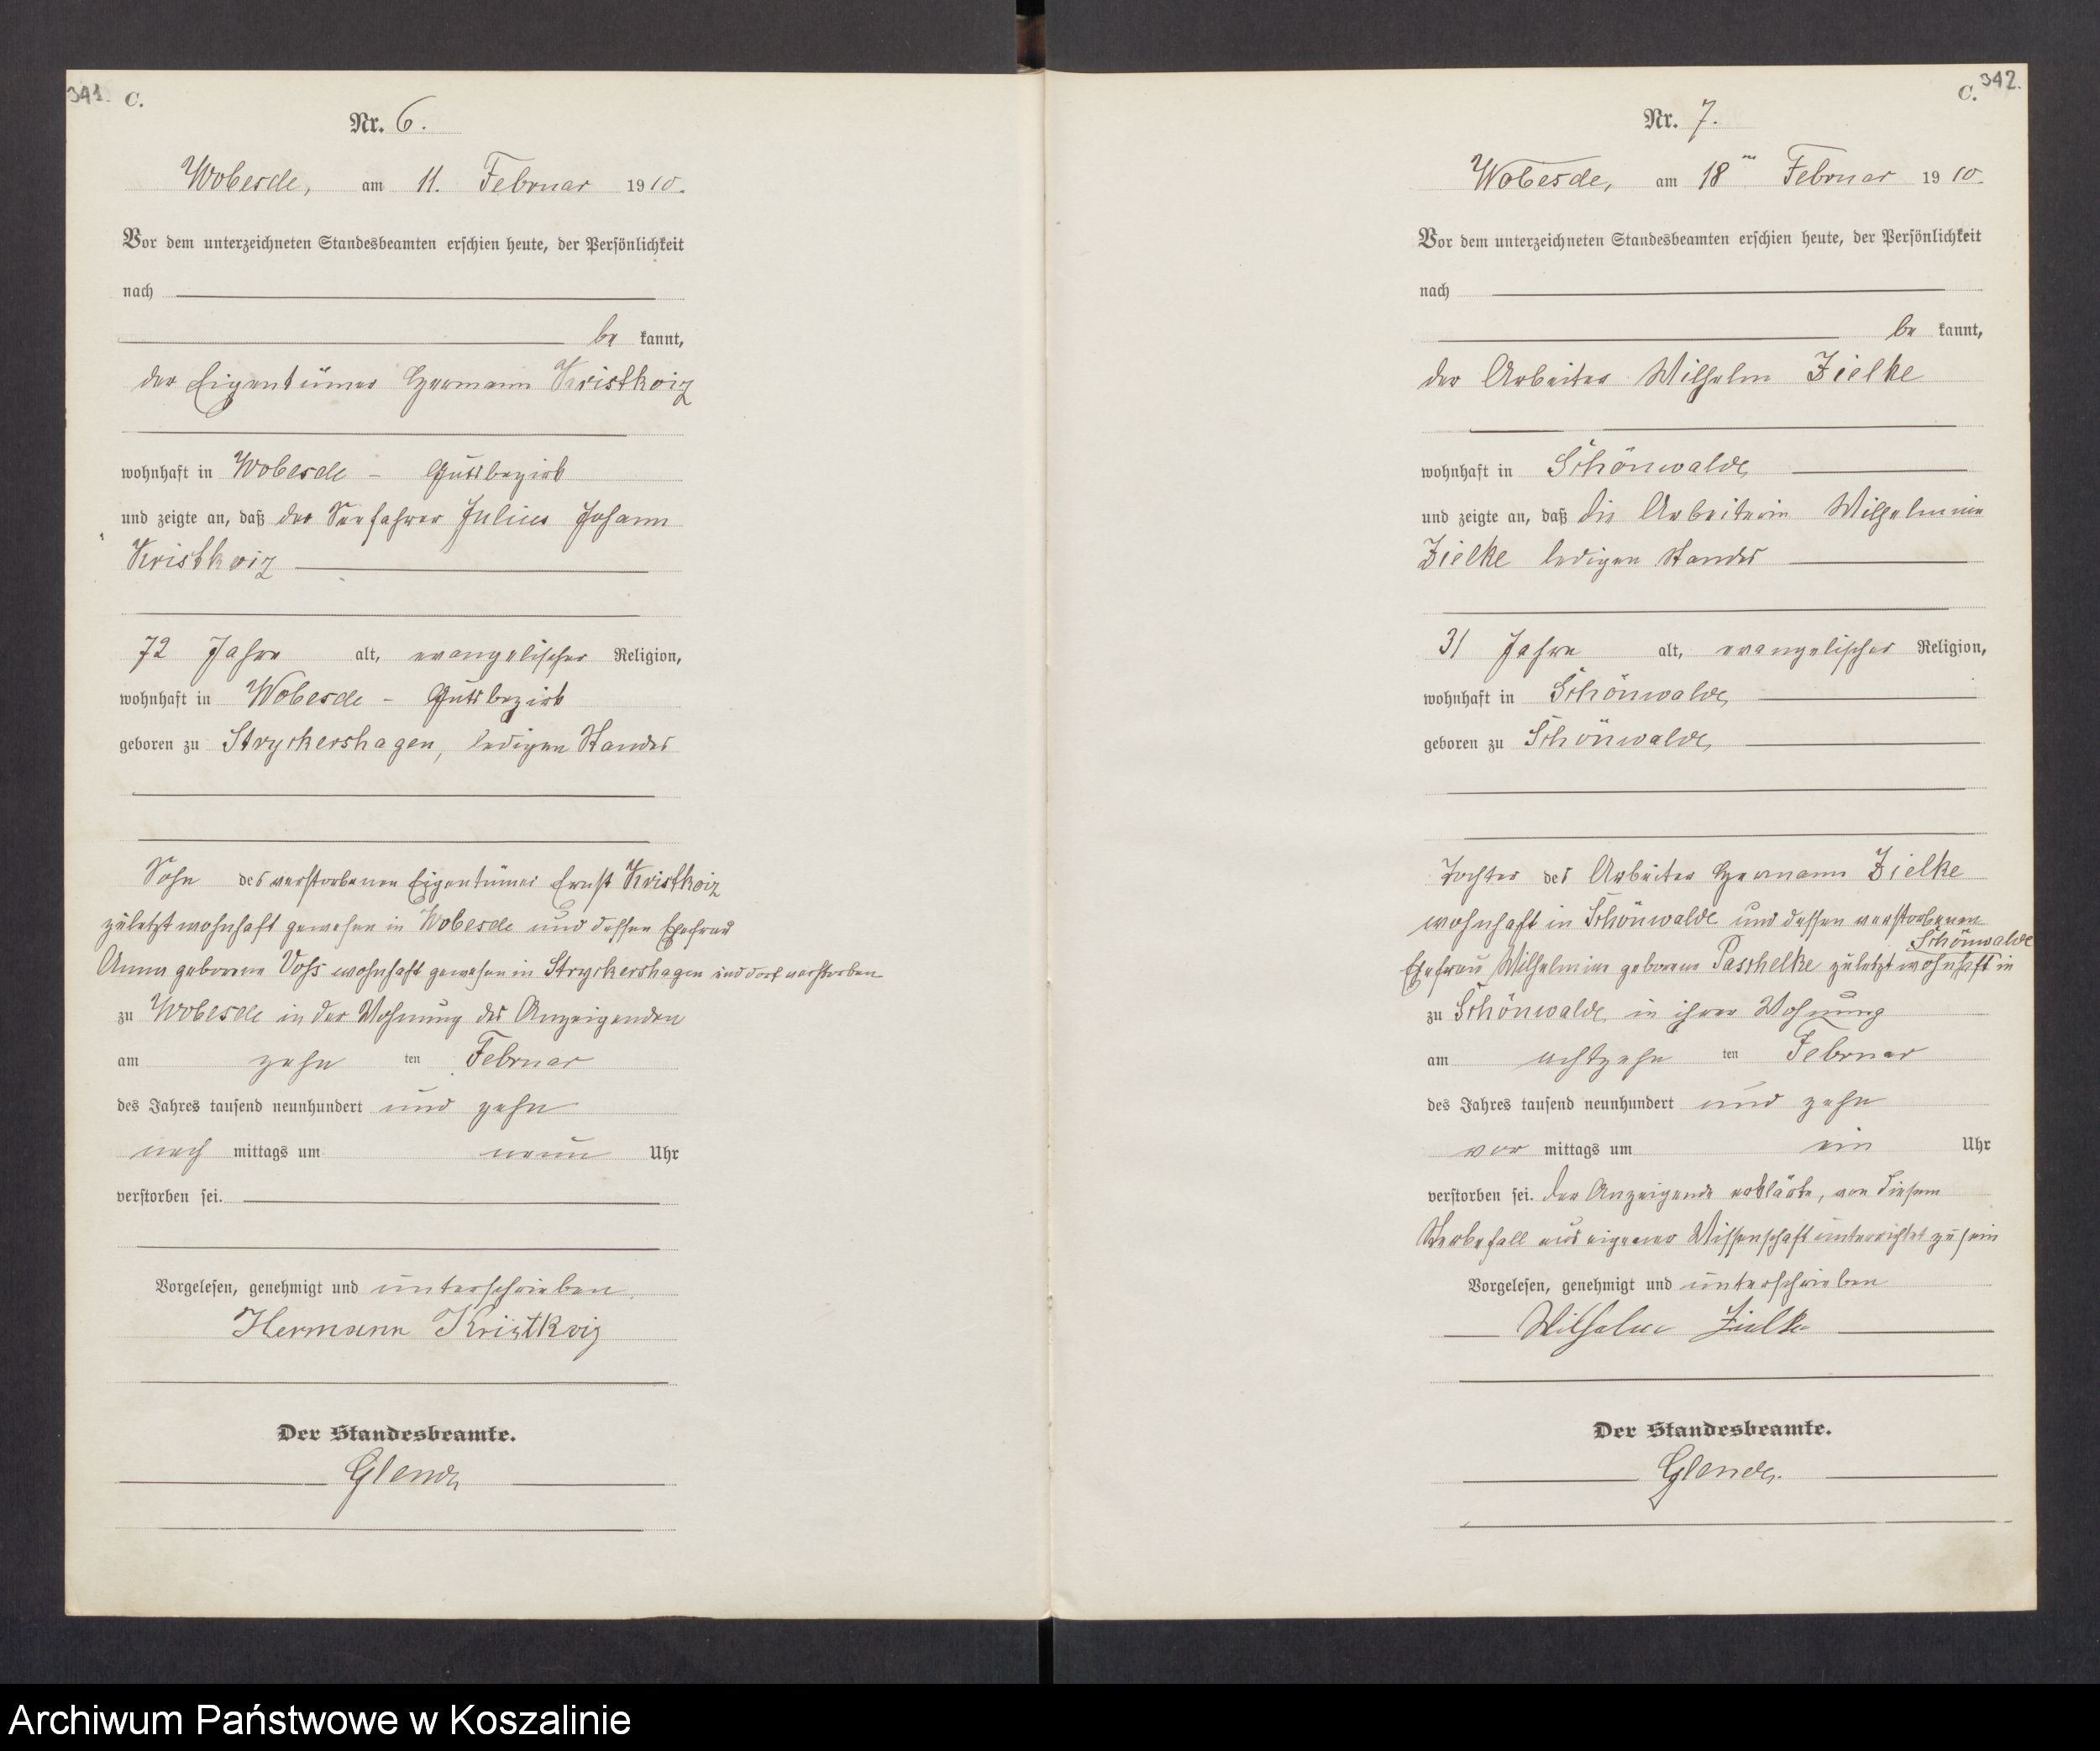 341. C.
Nr. 6.
Wobesde, am 11. Februar 1910.
Vor dem unterzeichneten Standesbeamten erschien heute, der Persönlichkeit
nach
be kannt,
der Eigentümer Hermann Kristkoiz
wohnhaft in Wobesde - Gutsbezirk
und zeigte an, daß der Seefahrer Julius Johann
Kristkoiz
72 Jahre alt, evangelischer Religion,
wohnhaft in Wobesde - Gutsbezirk
geboren zu Stryckershagen, ledigen Standes
Sohn des verstorbenen Eigentümer Ernst Kristkoiz
zuletzt wohnhaft gewesen in Wobesde und dessen Ehefrau
Anna geborene Voß wohnhaft gewesen in Stryckershagen und dort verstorben
zu Wobesde in der Wohnung des Anzeigenden
am zehn ten Februar
des Jahres tausend neunhundert und zehn
nach mittags um neun Uhr
verstorben sei.
Vorgelesen, genehmigt und unterschrieben.
Hermann Kristkoiz
Der Standesbeamte.
Glende
342.
C.
Nr. 7.
Wobesde, am 18ten Februar 1910.
Vor dem unterzeichneten Standesbeamten erschien heute, der Persönlichkeit
nach
be kannt,
der Arbeiter Wilhelm Zielke
wohnhaft in Schönwalde
und zeigte an, daß die Arbeiterin Wilhelmine
Zielke ledigen Standes
31 Jahre alt, evangelischer Religion,
wohnhaft in Schönwalde
geboren zu Schönwalde
Tochter des Arbeiter Hermann Zielke
wohnhaft in Schönwalde und dessen verstorbenen
Schönwalde
Ehefrau Wilhelmine geborene Paschelke zuletzt wohnhaft in
zu Schönwalde in ihrer Wohnung
am achtzehn ten Februar
des Jahres tausend neunhundert und zehn
vor mittags um ein Uhr
verstorben sei. Der Anzeigende erklärte, von diesem
Sterbefall aus eigener Wissenschaft unterrichtet zu sein
Vorgelesen, genehmigt und unterschrieben
Wilhelm Zielke
Der Standesbeamte.
Glende.
Archiwum Państwowe w Koszalinie